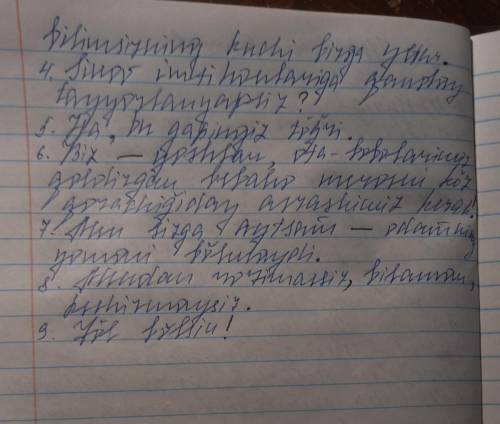 bilimsizning kuchi birga yetar.
4. Sinov imtihonlariga qanday
tayyorlanyapsiz?
5. Ha, bu gapingiz to'g'ri.
6. Biz — yoshlar, ota-bobolarimiz
qoldirgan bebaho merosni ko'z
qorachig'iday asrashimiz kerak!
7. Men sizga aytsam — odamning
yomoni bo'lmaydi.
8. Mendan rozimassiz, bilaman,
kechirmaysiz.
9. Yo'l bo'lsin!